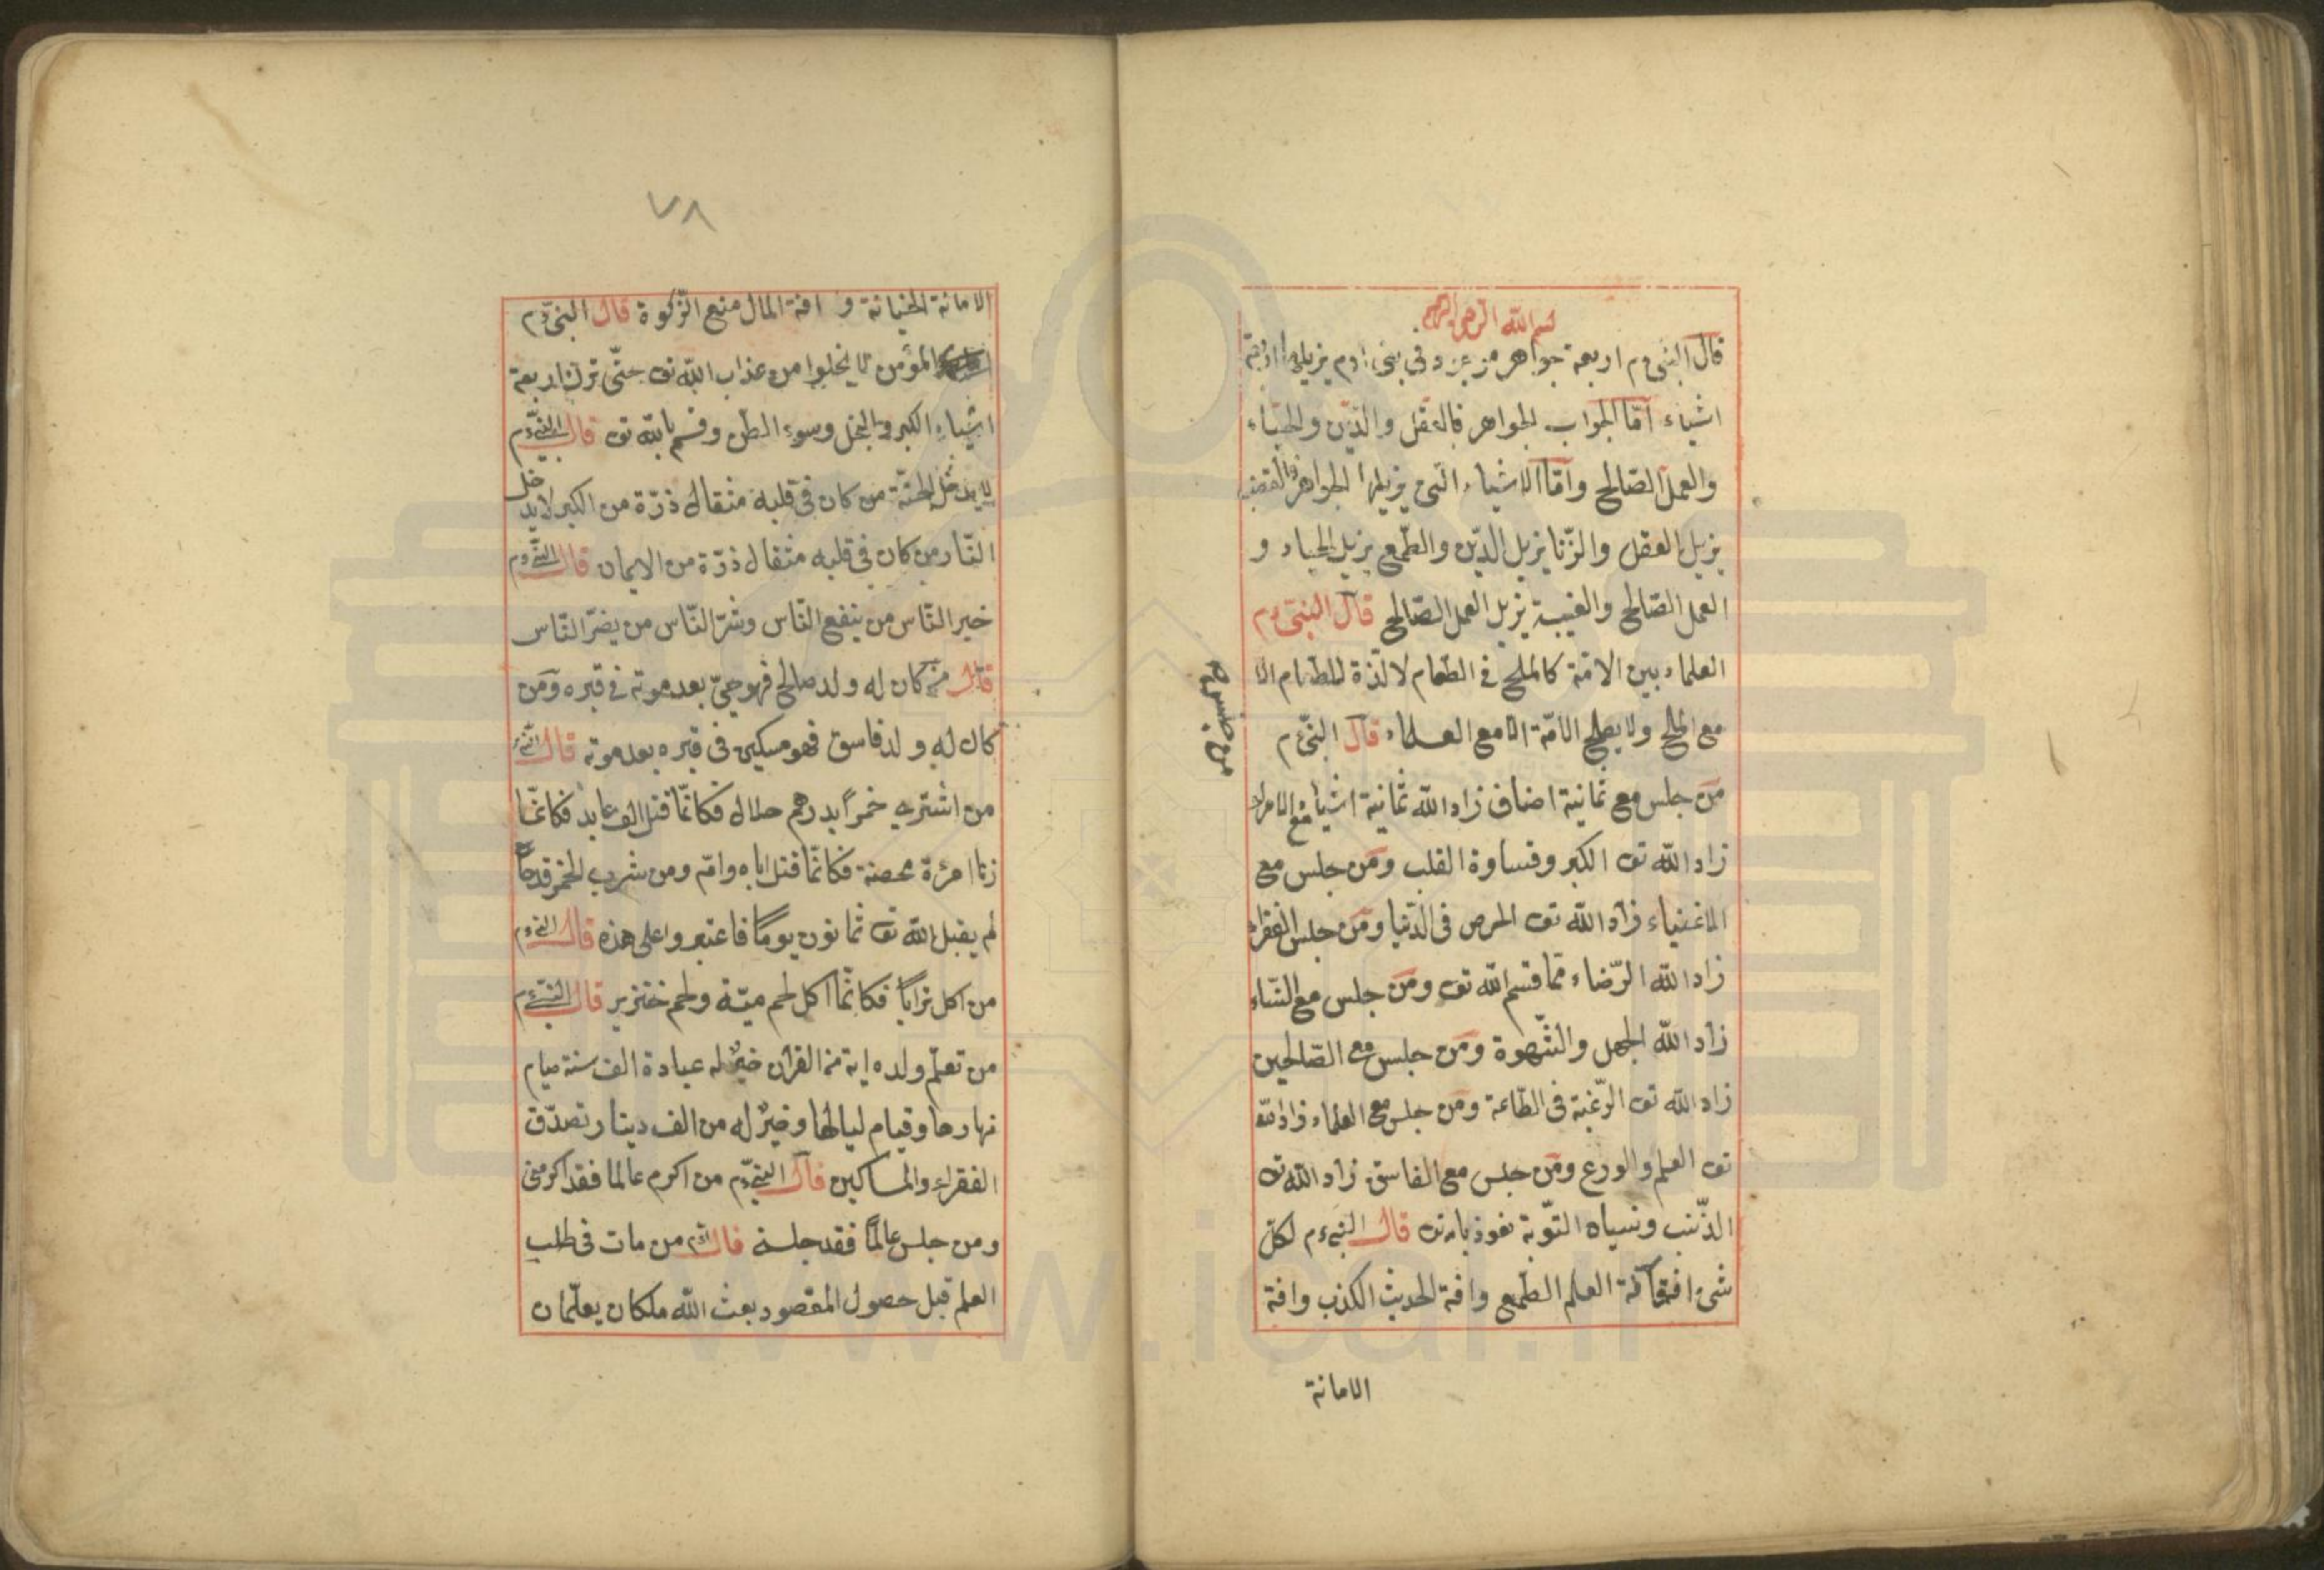 بسم الله الرحمن الرحيم
قال النبى ءم اربعة جواهر فى بنى ادم يزيلها اربعة
اشياء امّا الجواب الجواهر فالعقل والدّين والحياء
والعمل الصّالح وامّا الاشياء التى يزيلها الجواهر فالغضب
يزيل العقل والزّنا يزيل الدّين والطّمع يزيل الحياء و
العمل الصّالح والغيبة يزيل العمل الصّالح قال النبىّ ءم
العلماء بين الامّة كالملح فى الطعام لا لذّة للطعام الا
مع الملح ولا يصلح الامّة الا مع العلماء قال النبىّ ءم
من جلس مع ثمانية اصناف زاد الله ثمانية اشياء مع الامراء
زاد الله تع الكبر وقساوة القلب ومن جلس مع
الاغنياء زاد الله تع الحرص فى الدّنيا ومن جلس الفقراء
زاد الله الرّضاء ممّا قسم الله تع ومن جلس مع النّساء
زاد الله الجهل والشّهوة ومن جلس مع الصّالحين
زاد الله تع الرّغبة فى الطّاعة ومن جلس مع العلماء زاد الله
تع العلم والورع ومن جلس مع الفاسق زاد الله تع
الذّنب ونسياه التّوبة نعوذ بالله تع قال النبى ءم لكلّ
شئ افة افة العلم الطّمع وافة الحديث الكذب وافة
الامانة
٧٨
الامانة الخيانة و افة المال منع الزّكوة قال النبىّ ءم
المؤمن لا يخلوا من عذاب الله تع حتّى ترك اربعة
اشياء الكبر والبخل وسوء الظن وقسم بالله تع قال النبىّ ءم
لا يدخل الجنّة من كان فى قلبه مثقال ذرّة من الكبر لا يدخل
النّار من كان فى قلبه مثقال ذرّة من الايمان قال النّبى ءم
خير النّاس من ينفع النّاس وشرّ النّاس من يضرّ النّاس
قال من كان له ولد صالح فهو حىّ بعد موته فى قبره ومن
كان له ولد فاسق فهو مسكين فى قبره بعد موته قال النبى
من اشترى خمراً بدرهم حلال فكانّما قتل الف عابد فكانّما
زنا امرئة محصنة فكانّما قتل اباه وامّه ومن شرب الخمر قدحاً
لم يقبل الله تع ثمانون يوماً فاعتبروا على هذه قال النبى ءم
من اكل تراباً فكانّما اكل لحم ميّتة ولحم خنزير قال النبىّ ءم
من تعلّم ولده اية من القران خيرٌ له عبادة الف سنة صيام
نهارها وقيام لياليها وخيرٌ له من الف دينار تصدّق
الفقراء والمساكين قال النبىّ ءم من اكرم عالما فقد اكرمنى
ومن جلس عالماً فقد جلسنى قال ءم من مات فى طلب
العلم قبل حصول المقصود بعث الله ملكان يعلّمان
www.ical.ir